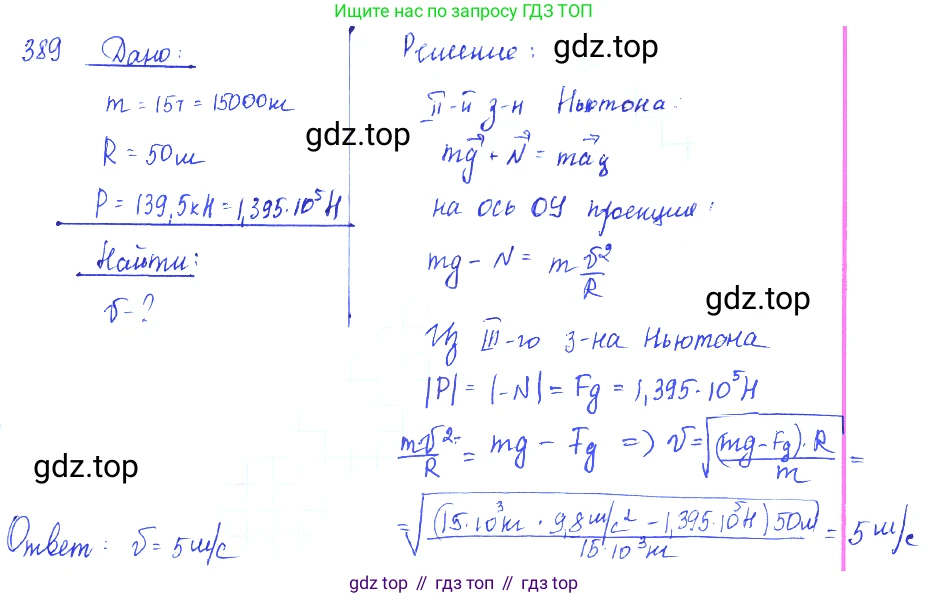 Ищите нас по запросу ГДЗ ТОП
389 Дано:
m = 15т = 15000кг
R = 50м
P = 139,5кН = 1,395·10⁵Н
Найти:
v - ?
Решение:
gdz.top
II-й з-н Ньютона
gdz.top
mg⃗ + N⃗ = ma⃗g
на ось ОУ проекция:
mg - N = m v²/R
gdz.top
Из III-го з-на Ньютона
|P| = |-N| = Fg = 1,395·10⁵Н
mv²/R = mg - Fg => v = √((mg-Fg)·R/m) =
gdz.top
= √((15·10³кг · 9,8м/с² - 1,395·10⁵Н)50м/15·10³кг) = 5м/с
Ответ: v = 5м/с
gdz.top // гдз топ // gdz.top